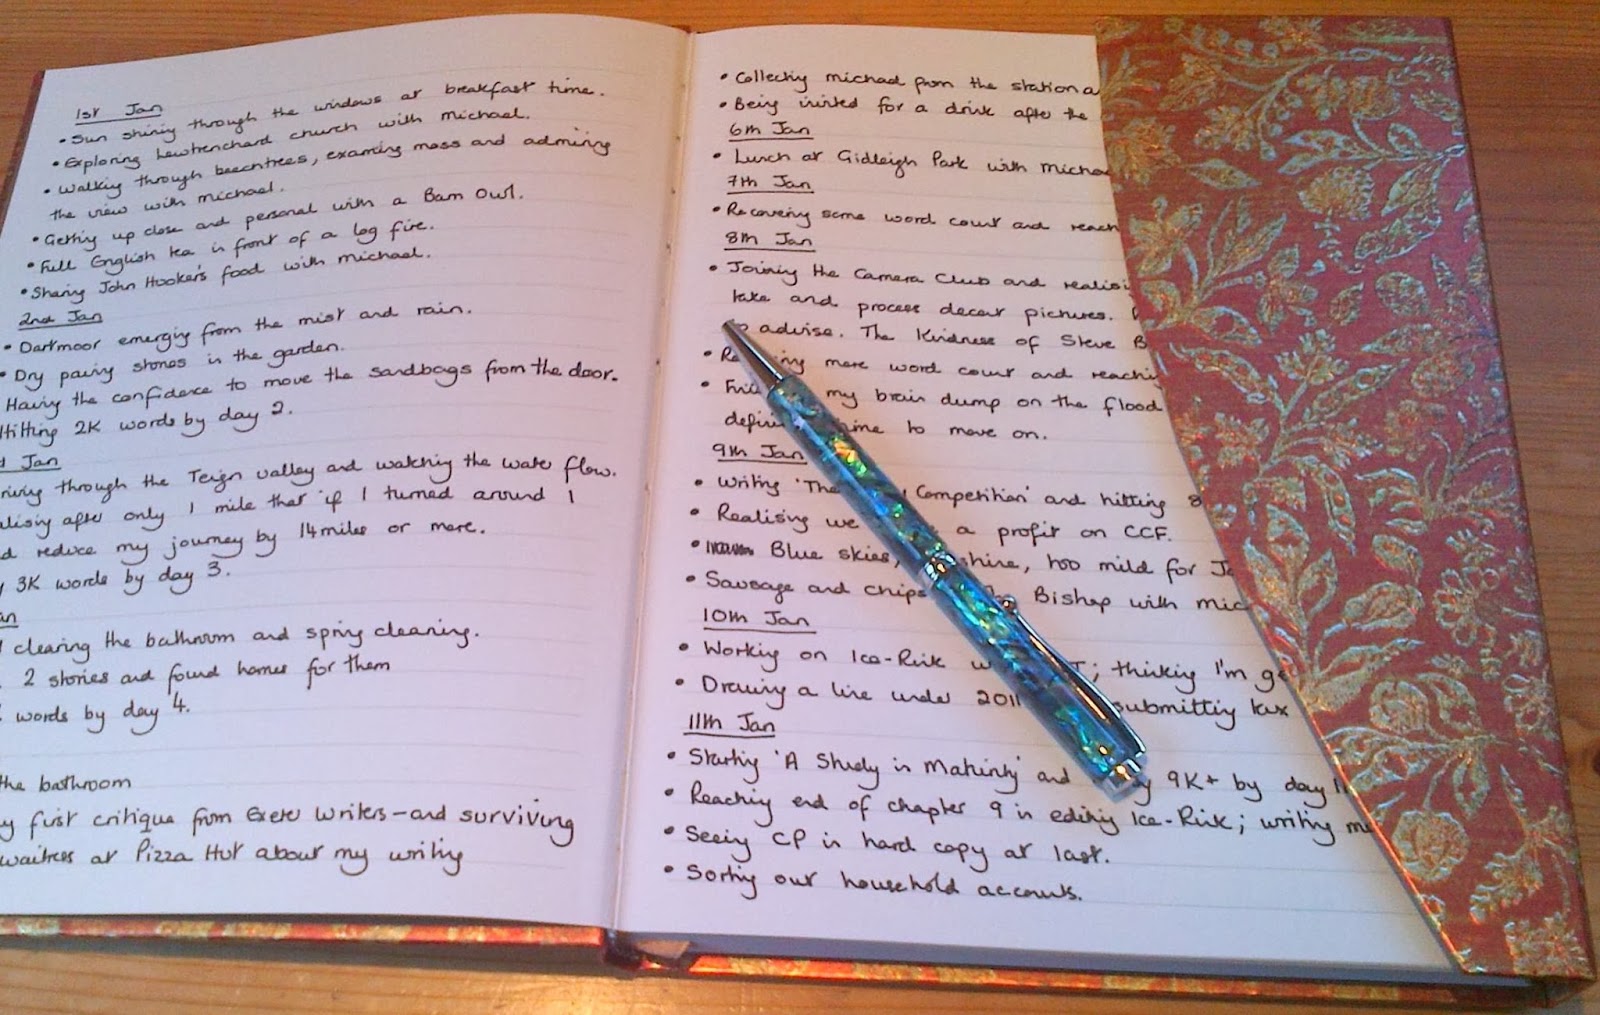 1st Jan
• Sun shining through the windows at breakfast time.
• Exploring Lewtrenchard church with Michael.
• Walking through beechtrees, examing moss and admiring
the view with Michael.
• Getting up close and personal with a Barn Owl.
• Full English tea in front of a log fire.
• Sharing John Hooker's food with Michael.
2nd Jan
• Dartmoor emerging from the mist and rain.
• Dry paving stones in the garden.
Having the confidence to move the sandbags from the door.
Hitting 2K words by day 2.
Jan
through the Teign valley and watching the water flow.
after only 1 mile that if I turned around I
reduce my journey by 14 miles or more.
3K words by day 3.
clearing the bathroom and spring cleaning.
2 stories and found homes for them
words by day 4.
the bathroom
first critique from Exeter Writers - and surviving
waitress at Pizza Hut about my writing
• Collecting Michael from the station a
• Being invited for a drink after the
6th Jan
• Lunch at Gidleigh Park with Micha
7th Jan
• Recovering some word count and reach
8th Jan
• Joining the Camera Club and realisi
take and process decent pictures.
advise. The kindness of Steve B
• more word count and reachi
• my brain dump on the flood
time to move on.
9th Jan
• Writing 'The Competition' and hitting 8
• Realising we a profit on CCF.
• Blue skies, too mild for Ja
• Sausage and chips Bishop with Mic
10th Jan
• Working on Ice-Rink ; thinking I'm ge
• Drawing a line under 2011 submitting tax
11th Jan
• Starting 'A Study in Maturity' and 9K+ by day 11
• Reaching end of chapter 9 in editing Ice-Rink; writing me
• Seeing CP in hard copy at last.
• Sorting out household accounts.